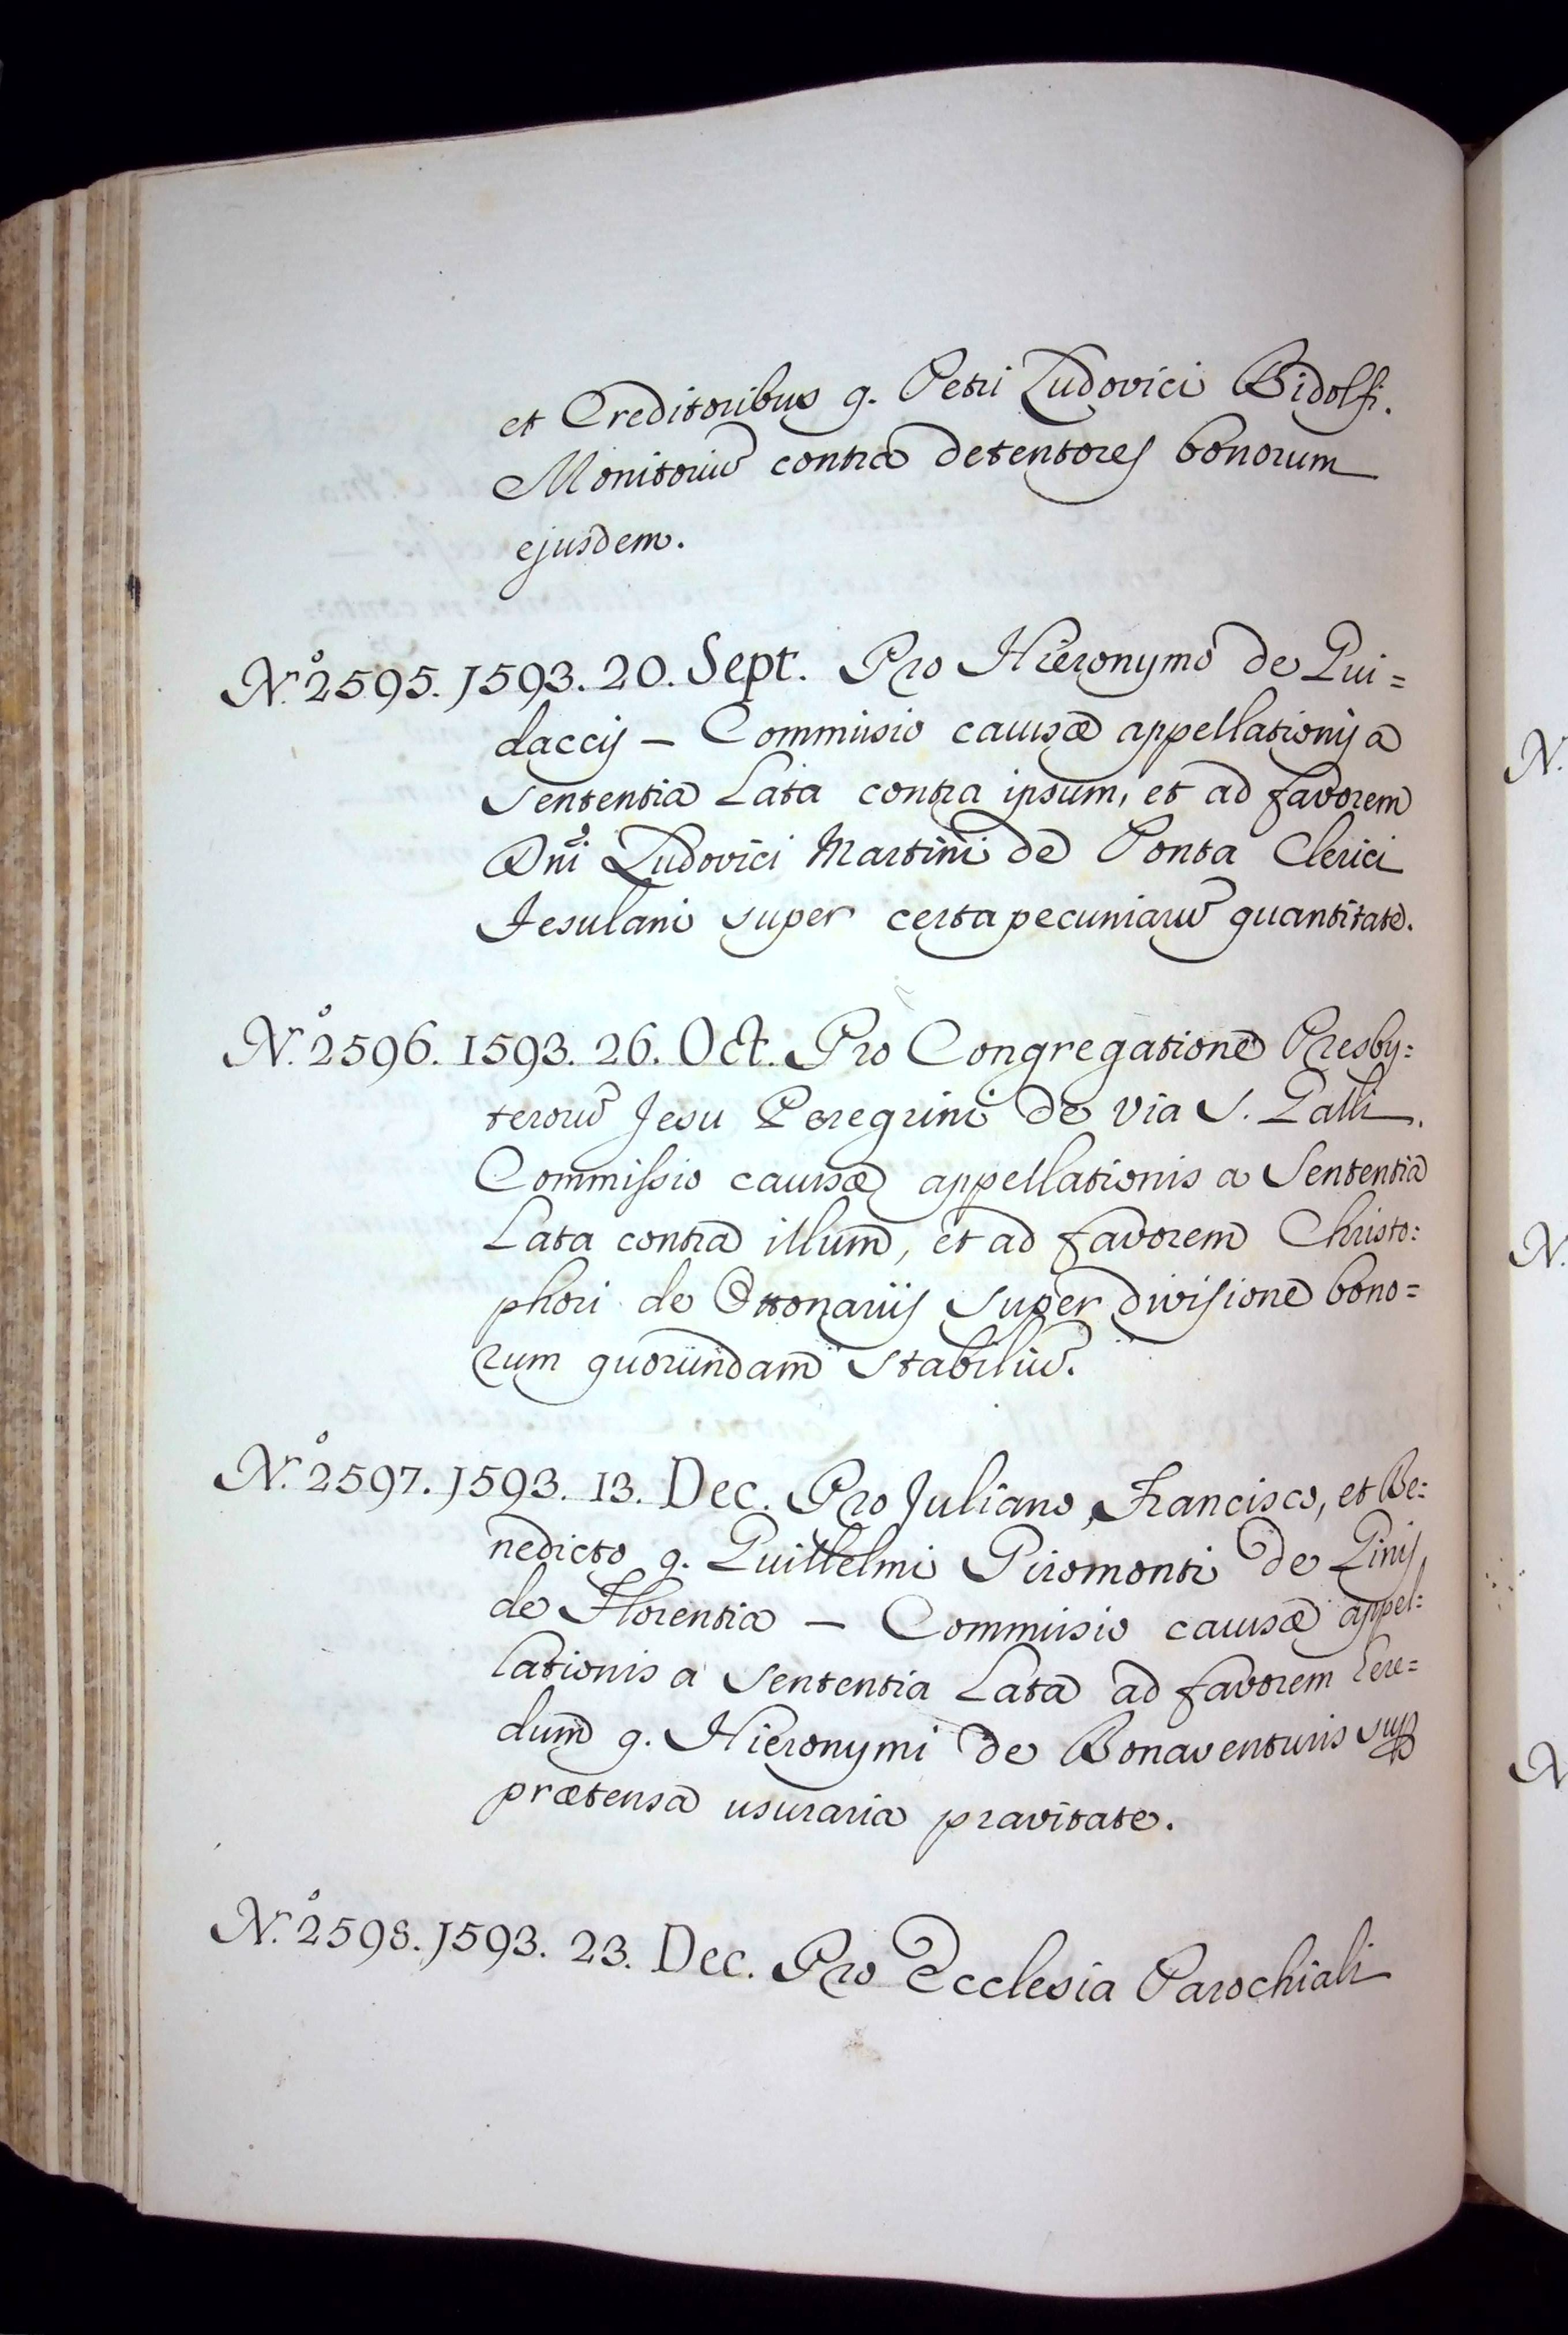 et Creditoribus q. Petri Ludovici Ridolfi.
Monitoriũ contra detentores bonorum
ejusdem.
N.º 2595. 1593. 20. Sept. Pro Hieronymo de Gui=
daccijs — Commissio causæ appellationis a
Sententia Lata contra ipsum, et ad favorem
Dñi Ludovici Martini de Ponta Clerici
Fesulani super certa pecuniarũ quantitate.
N.º 2596. 1593. 26. Oct. Pro Congregatione Presby=
terorũ Jesu Peregrini de via S. Galli.
Commissio causæ appellationis a Sententia
Lata contra illum, et ad favorem Christo=
phori de Ottonariis super divisione bono=
rum quorundam stabiliũ.
N.º 2597. 1593. 13. Dec. Pro Juliano, Francisco, et Be=
nedicto q. Guillelmi Piromonti de Ginis
de Florentia — Commissio causæ appel=
lationis a Sententia Lata ad favorem here=
dum q. Hieronymi de Bonaventuris
prætensa usuraria pravitate.
N.º 2598. 1593. 23. Dec. Pro Ecclesia Parochiali
N.
N.
N